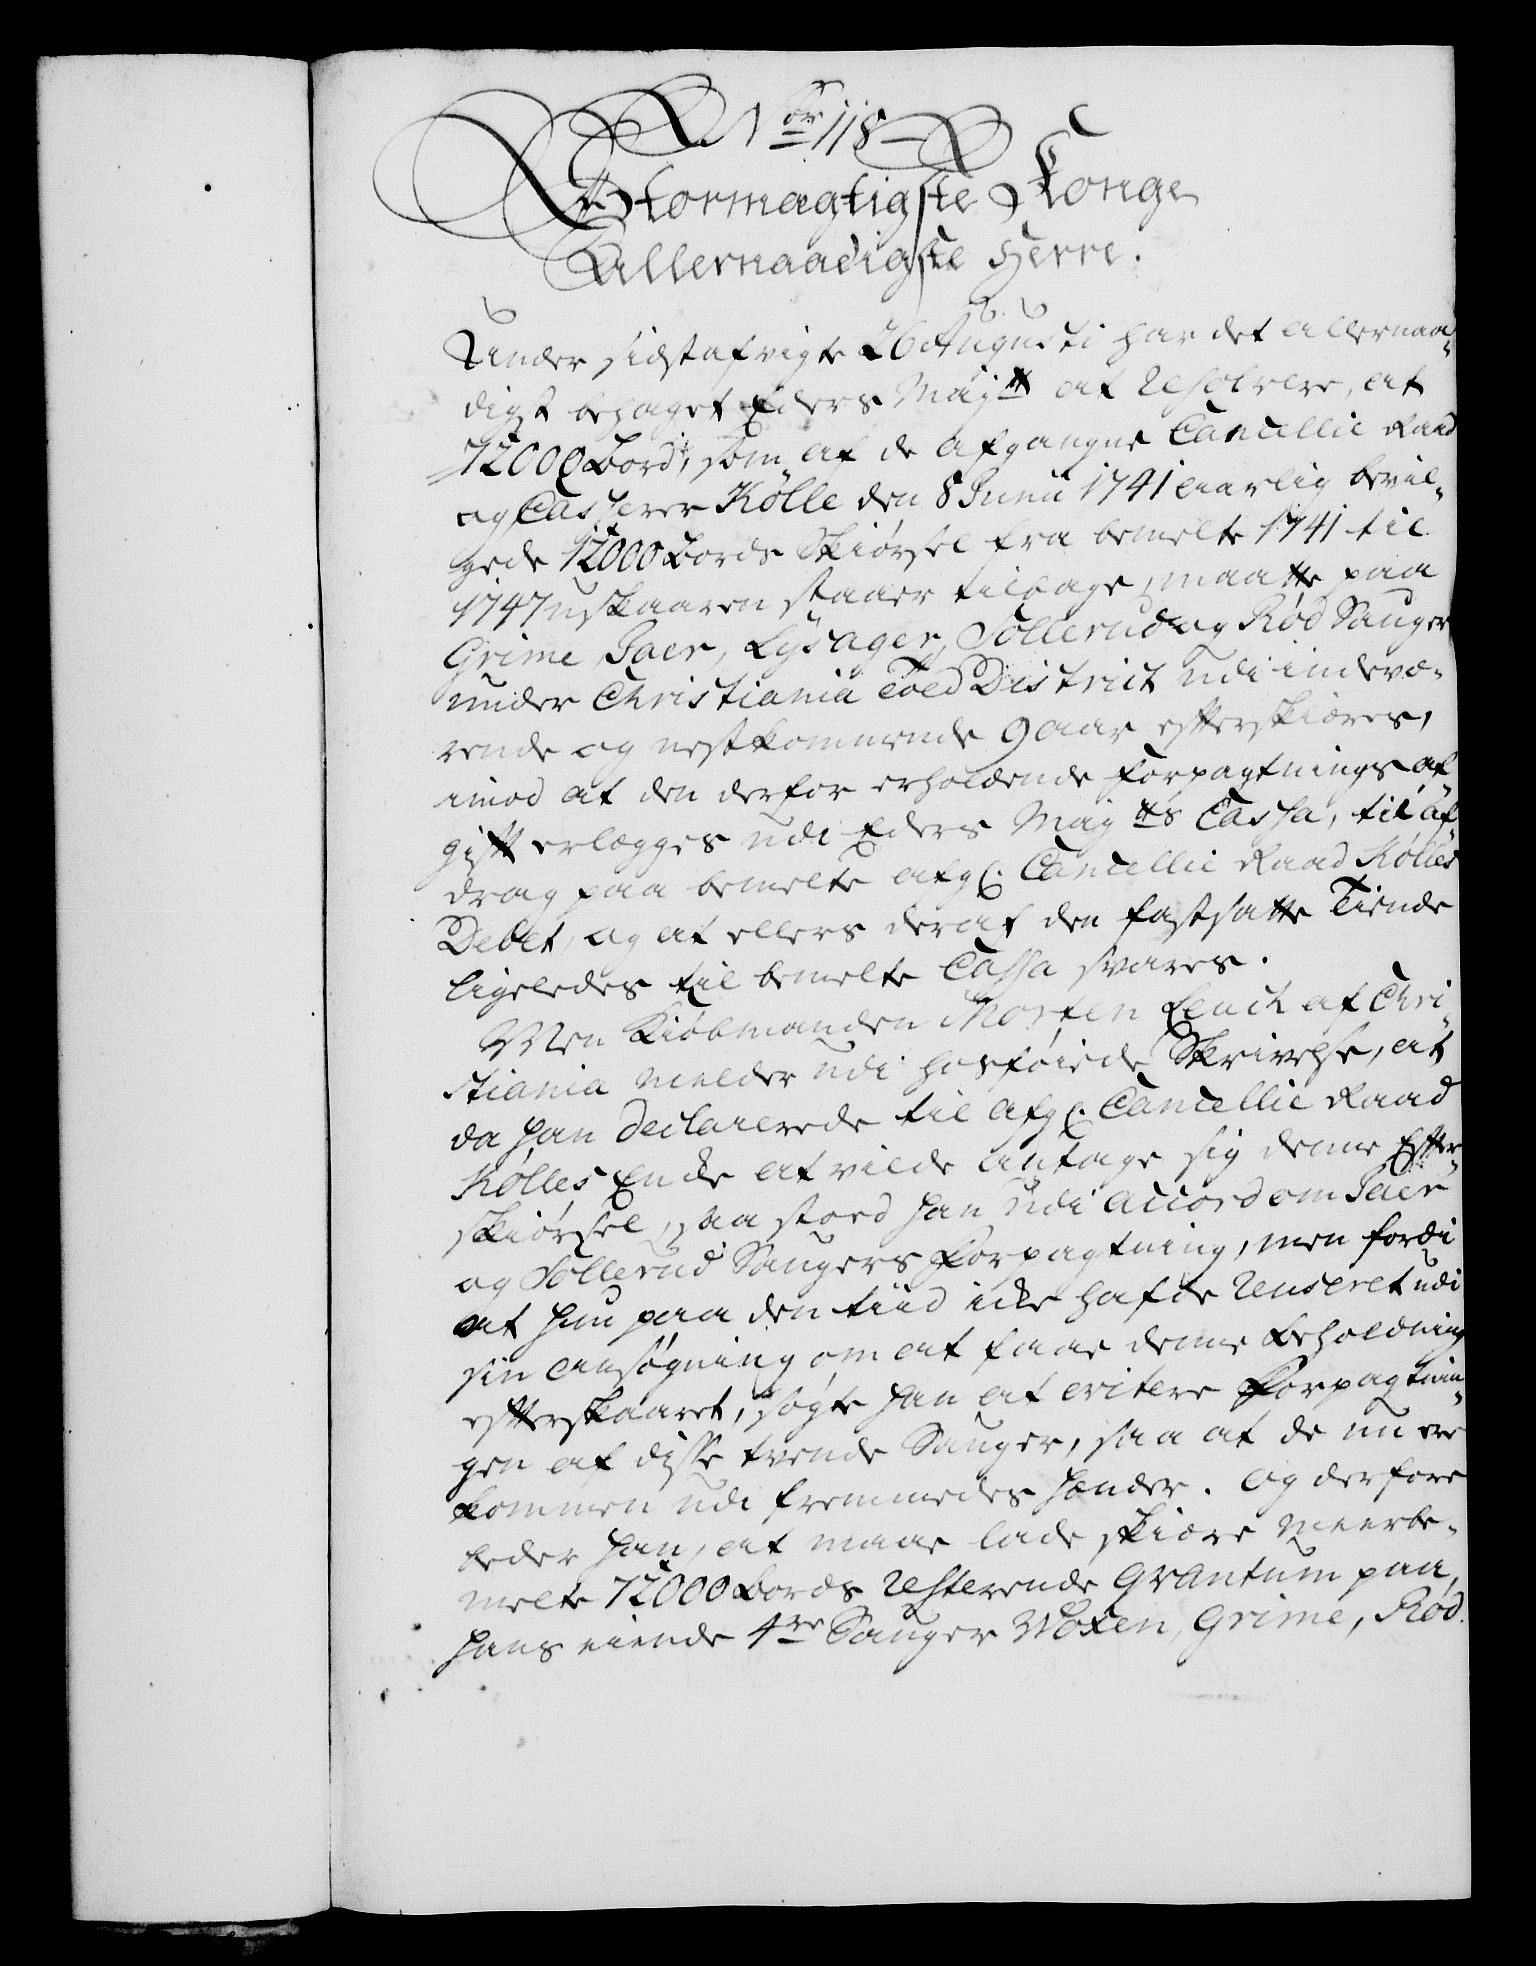 Nor 118
Stormagtigste Konge
Allernaadigste Herre.
Under sidstafvigte 26 Augusti har det allernaa-
digst behaget Eders Maj:tt at resolvere, at
72000 Bord, som af de afgangne Cancellie Raad
og Casserer Kölle den 8 Junii 1741 aarlig bevil-
gede 12000 Bords Skiørsel fra bemelte 1741 til
1747 uskaaren staaer tilbage, maatte paa
Grime, Jaer, Lysager, Sollerud og Rød Sauger
under Christiania Told District udi indevæ-
rende og nestkommende 9 aar efterskiæres,
imod at den derfor erholdende Forpagtnings af-
gift erlægges udi Eders Maj:tts Cassa, til af-
drag paa bemelte afg: Cancellie Raad Kölles
Debet, og at ellers deraf den fastsatte Tiende
ligeledes til bemelte Cassa svares.
Men Kiøbmanden Morten Leuch af Chri-
stiania melder udi hosføiede Skrivelse, at
da han declarerede til afg: Cancellie Raad
Kölles Enke at vilde antage sig denne Efter-
skiørsel, saa stoed han udi accord om Jaer
og Sollerud Saugers Forpagtning, men fordi
at hun paa den tiid icke hafde reusseret udi
sin ansøgning om at faae denne beholdning
efterskaaret, søgte han at evitere Forpagtnin-
gen af disse tvende Sauger, saa at de nu ere
kommen udi fremmedes hænder. Og derfore
beder han, at maae lade skiære meerbe-
melte 72000 Bords resterende Qvantum paa
hans eiende 4re Sauger Woxen, Grime, Rød